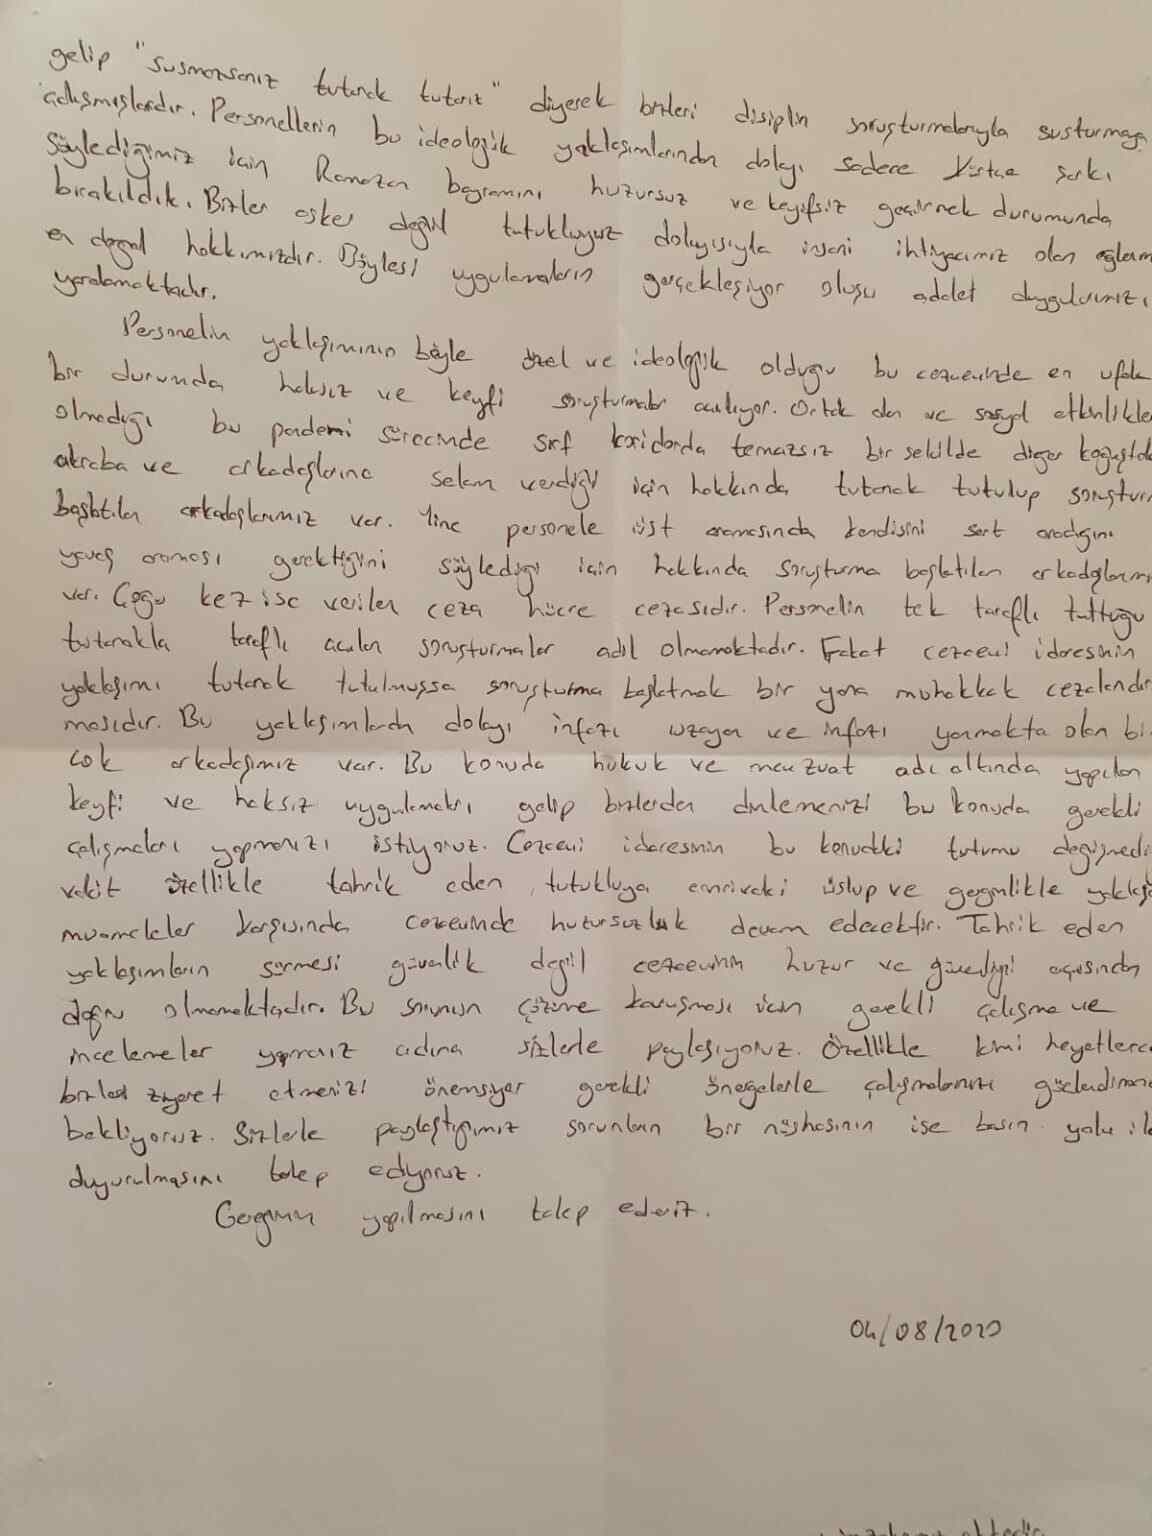 gelip "susmazsanız tutanak tutarız" diyerek bizleri disiplin soruşturmalarıyla susturmaya
çalışmışlardır. Personellerin bu ideolojik yaklaşımlarından dolayı sadece Kürtçe şarkı
Söylediğimiz için Ramazan bayramını huzursuz ve keyifsiz geçirmek durumunda
bırakıldık. Bizler asker değil tutukluyuz dolayısıyla insani ihtiyacımız olan
en doğal hakkımızdır. Böylesi uygulamaların gerçekleşiyor oluşu adalet duygularımızı
yaralamaktadır.
Personelin yaklaşımının böyle özel ve ideolojik olduğu bu cezaevinde en ufak
bir durumda haksız ve keyfi soruşturmalar açılıyor. Ortak alan ve sosyal etkinlikler
olmadığı bu pandemi sürecinde sırf koridorda temazsız bir şekilde diğer koğuştaki
akraba ve arkadaşlarına selam verdiği için hakkında tutanak tutulup soruştur
başlatılan arkadaşlarımız var. Yine personele üst aramasında kendisini sert aradığını
yavaş araması gerektiğini söylediği için hakkında soruşturma başlatılan arkadaşlarımı
var. Çoğu kez ise verilen ceza hücre cezasıdır. Personelin tek taraflı tuttuğu
tutanakla taraflı açılan soruşturmalar adil olmamaktadır. Fakat cezaevi idaresinin
yaklaşımı tutanak tutulmuşsa soruşturma başlatmak bir yana muhakkak cezalandır
masıdır. Bu yaklaşımlardan dolayı infazı uzayan ve infazı yanmakta olan bir
çok arkadaşımız var. Bu konuda hukuk ve mevzuat adı altında yapılan
keyfi ve haksız uygulamaları gelip bizlerden dinlemenizi bu konuda gerekli
çalışmaları yapmanızı istiyoruz. Cezaevi idaresinin bu konudaki tutumu değişmedi
vakit özellikle tahrik eden, tutukluya emrivaki üslup ve gerginlikle yaklaşa
muameleler karşısında cezaevinde huzursuzluk devam edecektir. Tahrik eden
yaklaşımların sürmesi güvenlik değil cezaevinin huzur ve güvenliği açısından
doğru olmamaktadır. Bu sorunun çözüme kavuşması için gerekli çalışma ve
incelemeler yapmanız adına sizlerle paylaşıyoruz. Özellikle kimi heyetlerce
bizleri ziyaret etmenizi önemsiyor gerekli önergelerle çalışmalarınızı güçlendirmeni
bekliyoruz. Sizlerle paylaştığımız sorunların bir nüshasının ise basın yolu ile
duyurulmasını talep ediyoruz.
Gereğinin yapılmasını talep ederiz.
04/08/2020